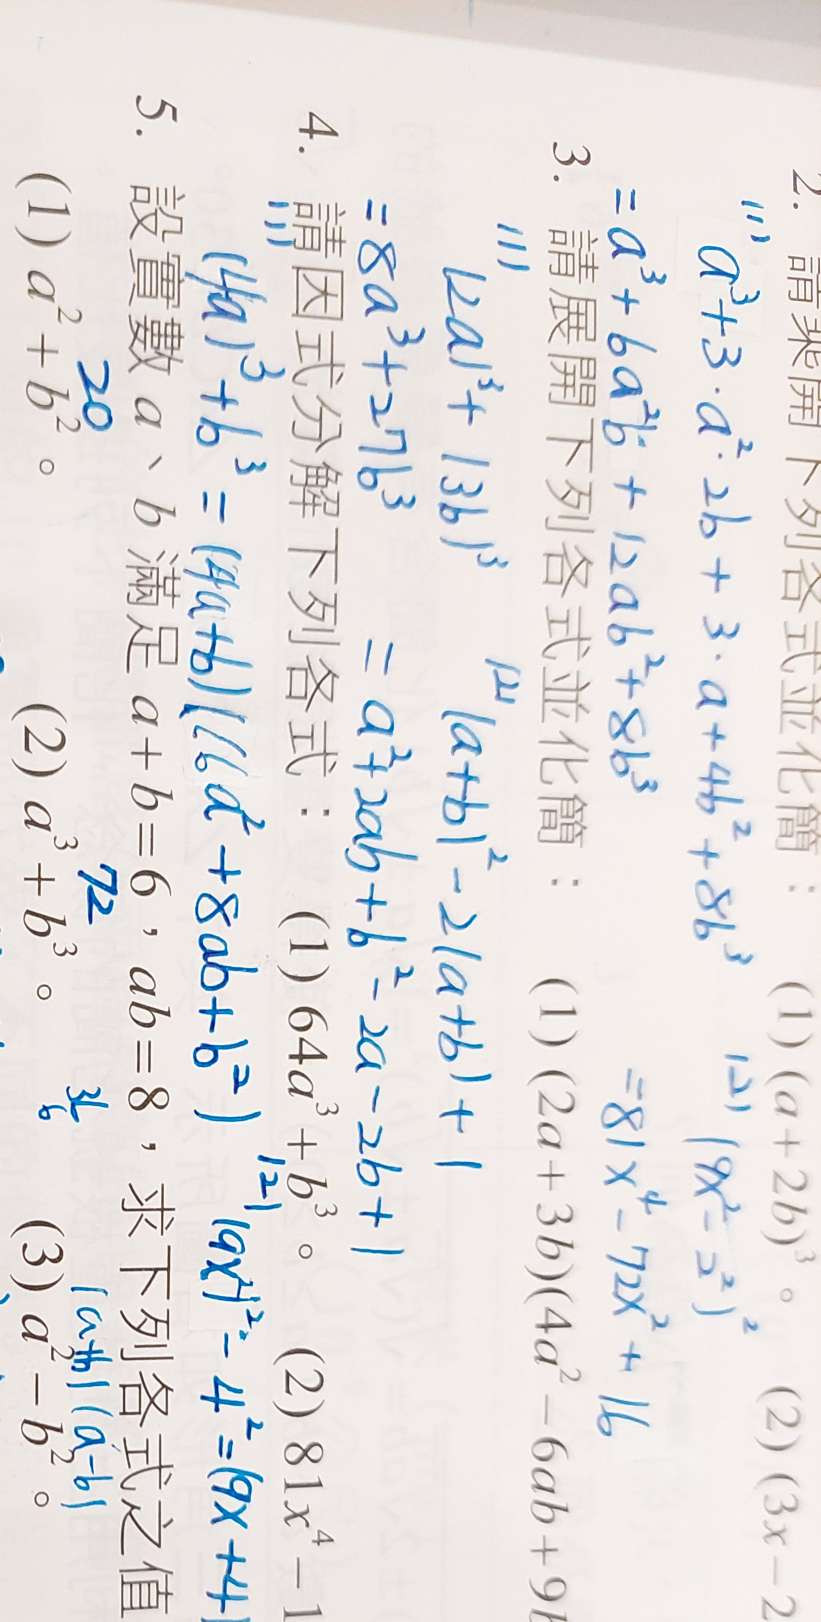 2. 請乘開下列各式並化簡： (1) (a+2b)³。 (2) (3x-2
(1) a³+3·a²·2b+3·a+4b²+8b³ (2) (9x²-2²)²
=a³+6a²b+12ab²+8b³ =81x⁴-72x²+16
3. 請展開下列各式並化簡： (1) (2a+3b)(4a²-6ab+9b
(1) (2a)³+(3b)³ (2) (a+b)²-2(a+b)+1
=8a³+27b³ =a²+2ab+b²-2a-2b+1
4. 請因式分解下列各式： (1) 64a³+b³。 (2) 81x⁴-1
(1) (4a)³+b³=(4a+b)(16a²+8ab+b²) (2) (9x²)²-4²=(9x+4)
5. 設實數 a、b 滿足 a+b=6，ab=8，求下列各式之值
20 72 (a+b)(a-b)
(1) a²+b²。 (2) a³+b³。 (3) a²-b²。